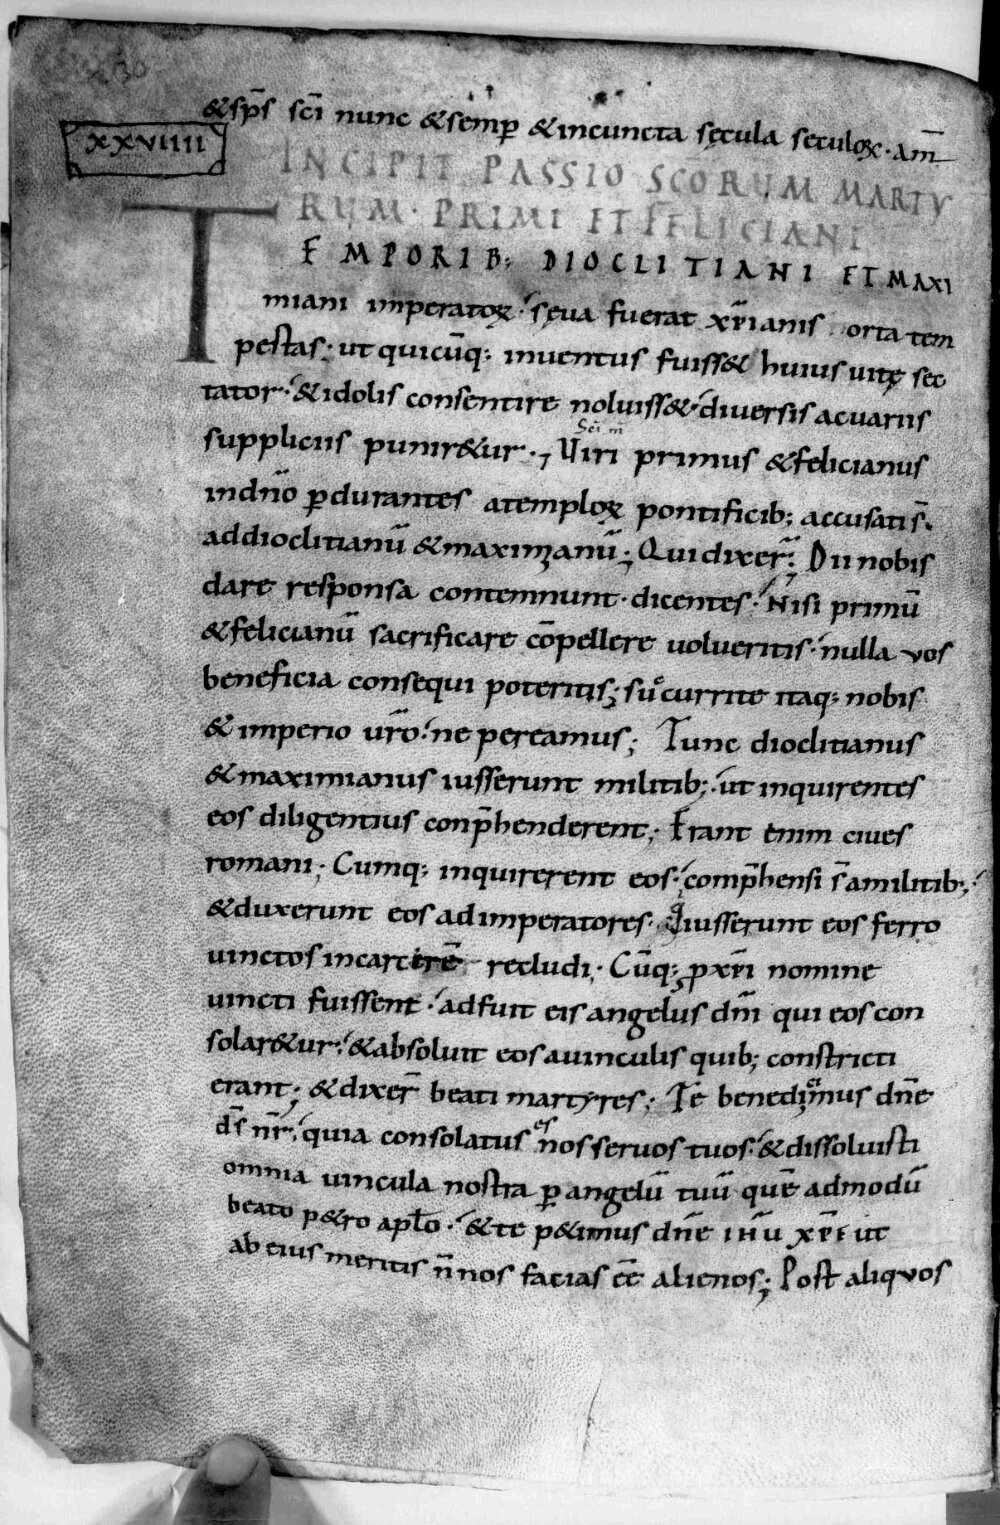 &sp̄s sc̄i nunc &semꝑ &incuncta sęcula seculoꝝ· am̄
XXVIIII
INCIPIT PASSIO SCŌRUM MARTY
RUM· PRIMI ET FELICIANI
TEMPORIB; DIOCLITIANI ET MAXI
miani imperatoꝝ· sęua fuerat xp̄ianis orta tem
pestas; ut quicūq; inventus fuiss& huius uitę sec
tator· &idolis consentire noluiss&· diversis acuariis
suppliciis punir&ur·; Sc̄i m̄ Viri primus &felicianus
indn̄o ꝑdurantes atemploꝝ pontificib; accusati s̄·
addioclitianū &maximianū; Qui dixer̄; Dii nobis
dare responsa contemnunt· dicentes· Nisi primū
&felicianū sacrificare cōpellere uolueritis· nulla vos
beneficia consequi poteritis; sucurrite itaq; nobis
& imperio ur̄o· ne pereamus; Tunc dioclitianus
&maximianus iusserunt militib;· ut inquirentes
eos diligentius conp̄henderent; Erant enim ciues
romani; Cumq; inquirerent eos· comp̄hensi s̄ amilitib;·
&duxerunt eos ad imperatores· Qiusserunt eos ferro
uinctos incarcerē recludi· Cūq; ꝓ xp̄i nomine
uincti fuissent· adfuit eis angelus dn̄i qui eos con
solar&ur· &absoluit eos auinculis quib; constricti
erant; &dixer̄ beati martyres; Te benedicimus dn̄e
ds̄ nr̄· quia consolatus es nos seruos tuos· &dissoluisti
omnia uincula nostra ꝑ angelū tuū quē admodū
beato p&ro apl̄o· &te p&imus dn̄e ihū xp̄e ut
ab eius meritis n̄ nos facias eē alienos; Post aliquos